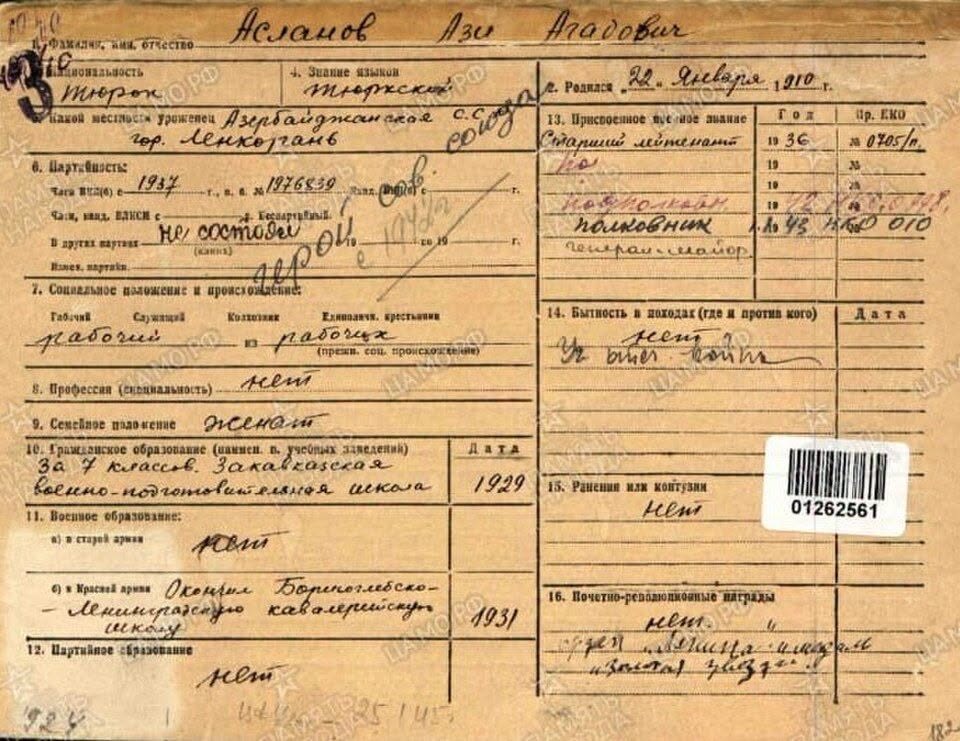 Асланов Ази Агадович
1. Фамилия, имя, отчество
3
Национальность
Тюрок
4. Знание языков
тюркский
2. Родился "22" Января 1910 г.
5. Какой местности уроженец Азербайджанская С.С.
гор. Ленкорань
6. Партийность:
Член ВКП(б) с 1937 г., п. б. № 1976839 Канд. ВКП(б) с г.
Член, канд. ВЛКСМ с Беспартийный
В других партиях не состоял 19 по 19 г.
(каких)
Измен. партийн.
герой сов. союза
с 1942 г
7. Социальное положение и происхождение:
Рабочий Служащий Колхозник Единоличн. крестьянин
рабочий из рабочих
(прежн. соц. происхождение)
8. Профессия (специальность) нет
9. Семейное положение женат
10. Гражданское образование (наимен. в. учебных заведений)
Дата
За 7 классов. Закавказская
военно-подготовительная школа 1929
11. Военное образование:
а) в старой армии нет
б) в Красной армии Окончил Борисоглебско-
-Ленинградскую кавалерийскую
школу 1931
12. Партийное образование
нет
13. Присвоенное военное звание Год Пр. НКО
Старший лейтенант 1936 № 0705/п.
19 №
19 №
подполковн
полковник 43 010
генерал-майор
14. Бытность в походах (где и против кого) Дата
нет
Уч отеч. войны
15. Ранения или контузии
нет
01262561
16. Почетно-революционные награды
нет
орден "Ленина" и медаль
"Золотая звезда"
ЦАМО РФ
ПАМЯТЬ НАРОДА